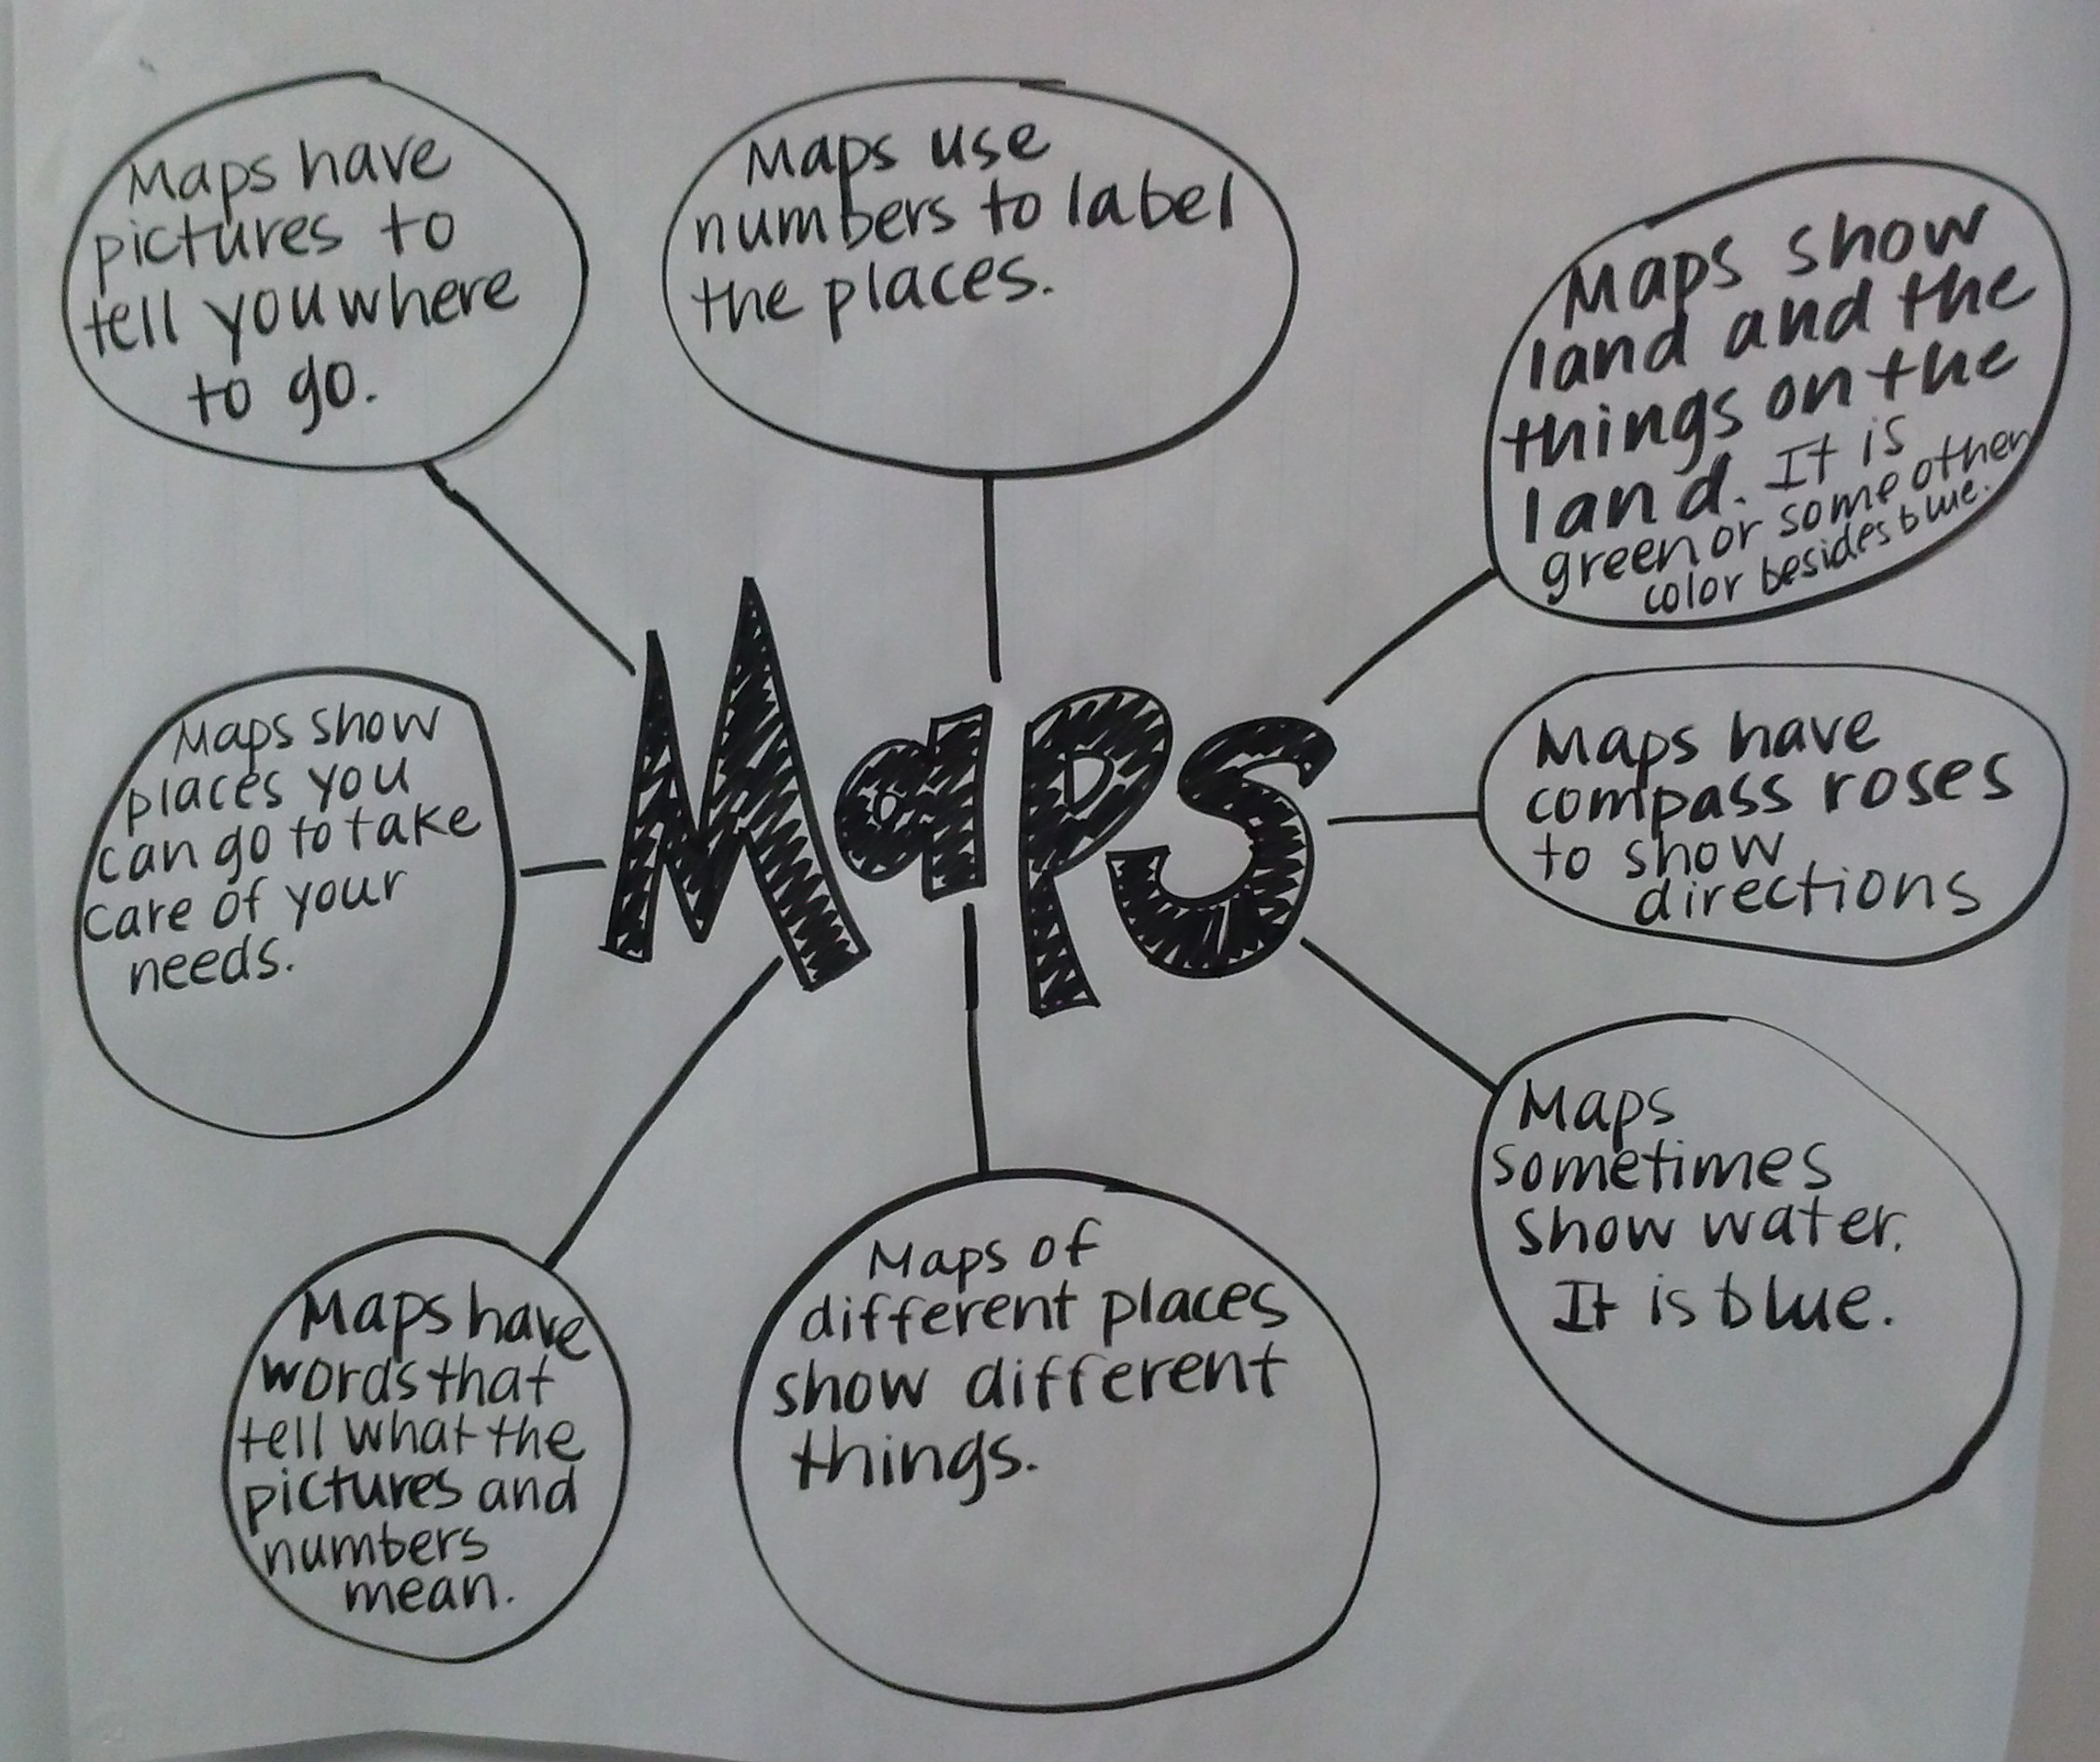 Maps have
pictures to
tell you where
to go.
Maps use
numbers to label
the places.
Maps show
land and the
things on the
land. It is
green or some other
color besides blue.
Maps show
places you
can go to take
care of your
needs.
Maps
Maps have
compass roses
to show
directions
Maps have
words that
tell what the
pictures and
numbers
mean.
Maps of
different places
show different
things.
Maps
sometimes
show water.
It is blue.